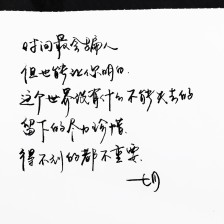 时间最会骗人
但也能让你明白
这个世界没有什么不能失去的
留下的尽力珍惜
得不到的都不重要
七月